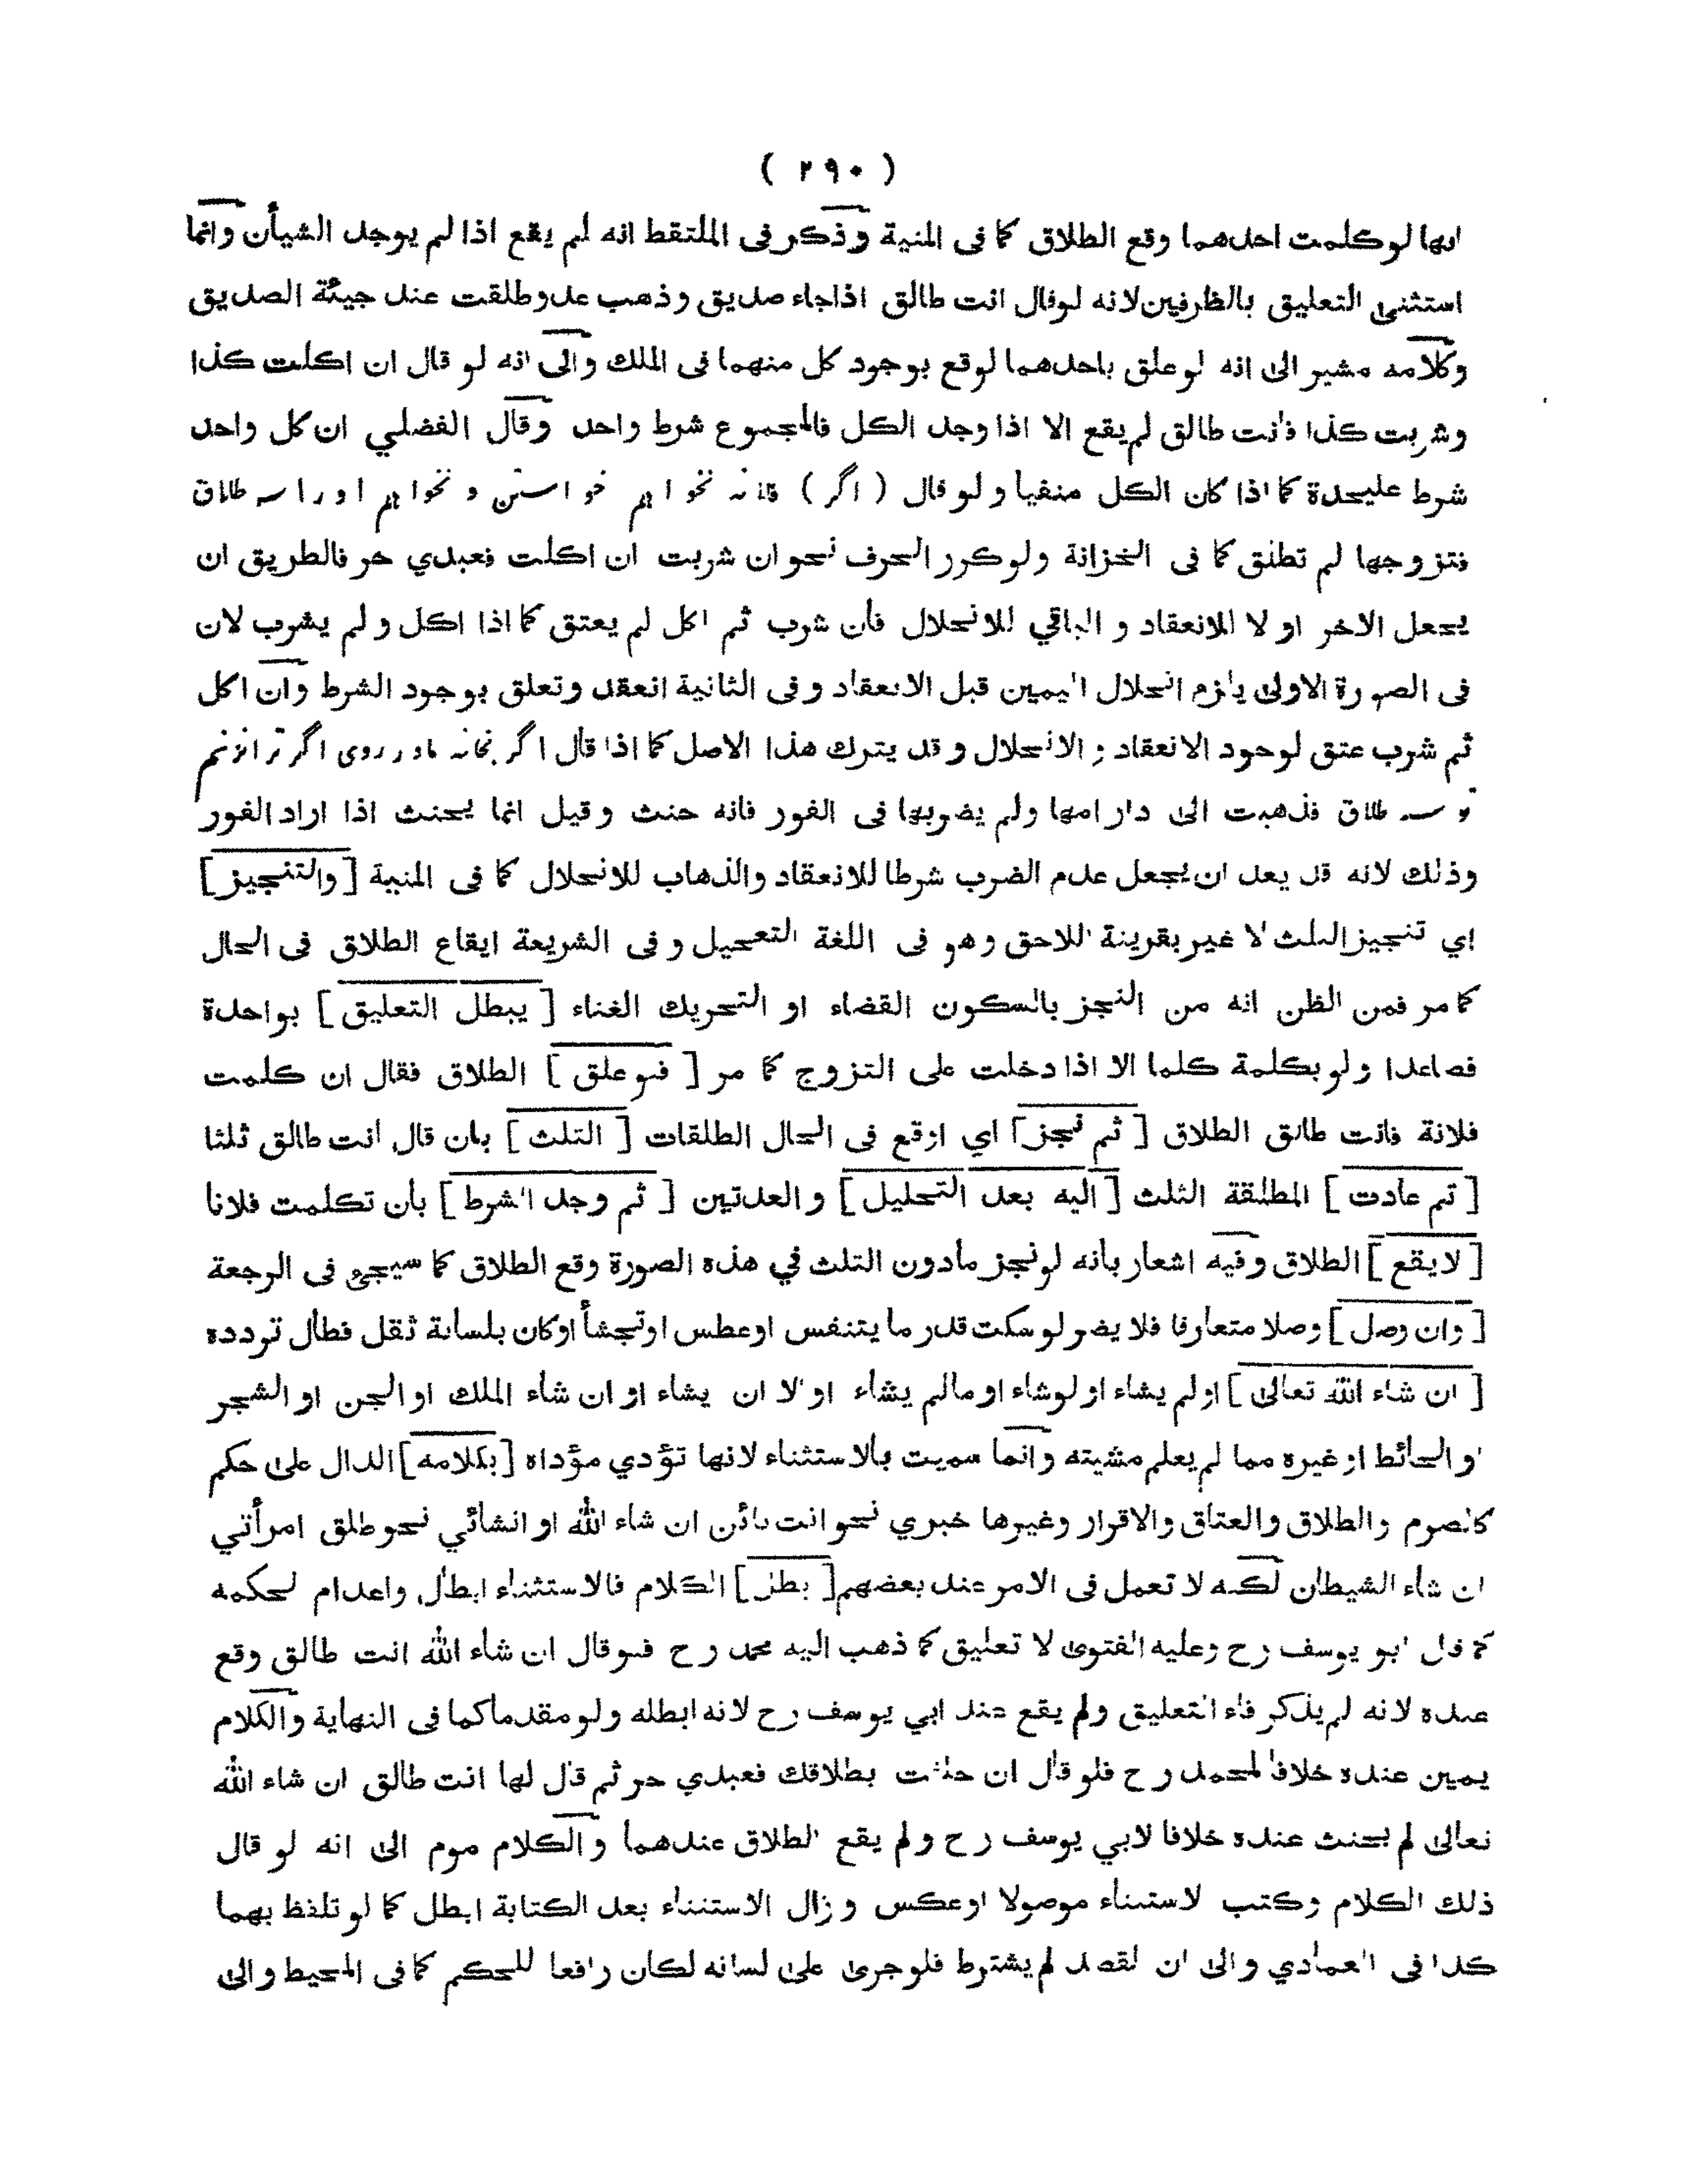 ( ٢٩٠ )
انها لو كلمت احدهما وقع الطلاق كما فى المنية وذكر فى الملتقط انه لم يقع اذا لم يوجد الشيأن وانما
استثنى التعليق بالظرفين لانه لوقال انت طالق اذاجاء صديق وذهب عدو طلقت عند جيئة الصديق
وكلامه مشير الى انه لو علق باحدهما لوقع بوجود كل منهما فى الملك والى انه لو قال ان اكلت كذا
وشربت كذا فانت طالق لم يقع الا اذا وجد الكل فالمجموع شرط واحد وقال الفضلي ان كل واحد
شرط عليحدة كما اذا كان الكل منفيا ولو قال ( اگر ) فلانه نخواهم خواستن و نخواهم او را سه طلاق
فتزوجها لم تطلق كما فى الخزانة ولو كرر الحرف نحو ان شربت ان اكلت فعبدي حر فالطريق ان
يجعل الاخر اولا للانعقاد و الباقي للانحلال فأن شرب ثم اكل لم يعتق كما اذا اكل و لم يشرب لان
فى الصورة الاولى يلزم انحلال اليمين قبل الانعقاد و فى الثانية انعقد وتعلق بوجود الشرط وان اكل
ثم شرب عتق لوجود الانعقاد و الانحلال وقد يترك هذا الاصل كما اذا قال اگر بخانه مادر روى اگر ترا نزنم
تو سه طلاق فذهبت الى دار امها ولم يضربها فى الفور فانه حنث وقيل انما يحنث اذا اراد الفور
وذلك لانه قد يعد ان يجعل عدم الضرب شرطا للانعقاد والذهاب للانحلال كما فى المنية [ والتنجيز ]
اي تنجيز الثلث لا غير بقرينة اللاحق وهو فى اللغة التعجيل و فى الشريعة ايقاع الطلاق فى الحال
كما مر فمن الظن انه من النجز بالسكون القضاء او التحريك الغناء [ يبطل التعليق ] بواحدة
فصاعدا ولو بكلمة كلما الا اذا دخلت على التزوج كما مر [ فلو علق ] الطلاق فقال ان كلمت
فلانة فانت طالق الطلاق [ ثم نجز ] اي اوقع فى الحال الطلقات [ الثلث ] بان قال انت طالق ثلثا
[ ثم عادت ] المطلقة الثلث [ اليه بعد التحليل ] والعدتين [ ثم وجد الشرط ] بأن تكلمت فلانا
[ لايقع ] الطلاق وفيه اشعار بأنه لو نجز مادون الثلث في هذه الصورة وقع الطلاق كما سيجىء فى الرجعة
[ وان وصل ] وصلا متعارفا فلا يضر لو سكت قدر ما يتنفس او عطس او تجشأ او كان بلسانه ثقل فطال تردده
[ ان شاء الله تعالى ] او لم يشاء او لوشاء او مالم يشاء او الا ان يشاء او ان شاء الملك او الجن او الشجر
او الحائط او غيره مما لم يعلم مشيته وانما سميت بالاستثناء لانها تؤدي مؤداه [ بكلامه ] الدال على حكم
كالصوم والطلاق والعتاق والاقرار وغيرها خبري نحو انت بائن ان شاء الله او انشائي نحو طلق امرأتي
ان شاء الشيطان لكنه لا تعمل فى الامر عند بعضهم [ بطل ] الكلام فالاستثناء ابطال واعدام لحكمه
كما قال ابو يوسف رح وعليه الفتوى لا تعليق كما ذهب اليه محمد رح فلو قال ان شاء الله انت طالق وقع
عنده لانه لم يذكر فاء التعليق ولم يقع عند ابي يوسف رح لانه ابطله ولو مقدما كما فى النهاية والكلام
يمين عنده خلافا لمحمد رح فلو قال ان حلفت بطلاقك فعبدي حر ثم قال لها انت طالق ان شاء الله
تعالى لم يحنث عنده خلافا لابي يوسف رح ولم يقع الطلاق عندهما والكلام موم الى انه لو قال
ذلك الكلام وكتب الاستثناء موصولا او عكس و زال الاستثناء بعد الكتابة ابطل كما لو تلفظ بهما
كذا فى العمادي والى ان القصد لم يشترط فلو جرى على لسانه لكان رافعا للحكم كما فى المحيط والى